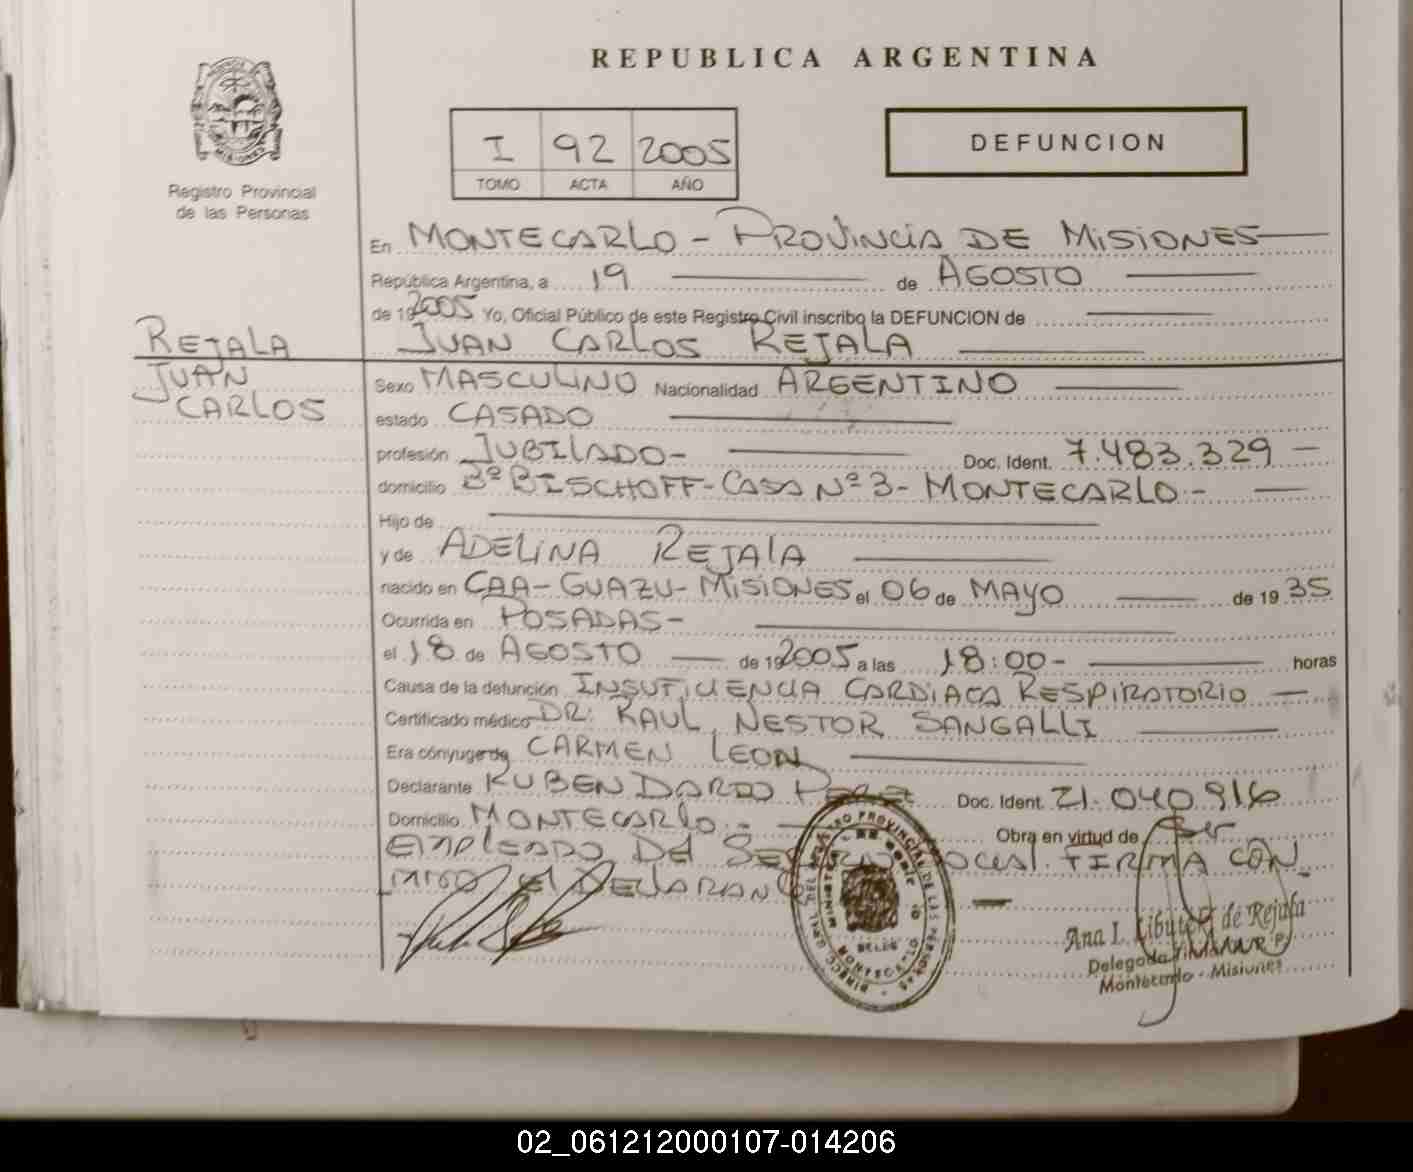 REPUBLICA ARGENTINA
I 92 2005
TOMO ACTA AÑO
DEFUNCION
PROVINCIA MISIONES
Registro Provincial
de las Personas
En MONTECARLO - PROVINCIA DE MISIONES
República Argentina, a 19 de AGOSTO
de 19 2005 Yo, Oficial Público de este Registro Civil inscribo la DEFUNCION de
JUAN CARLOS REJALA
REJALA
JUAN
CARLOS
Sexo MASCULINO Nacionalidad ARGENTINO
estado CASADO
profesión JUBILADO- Doc. Ident. 7.483.329 -
domicilio Bº BISCHOFF - CASA Nº 3 - MONTECARLO.-
Hijo de
y de ADELINA REJALA
nacido en CAA-GUAZU- MISIONES el 06 de MAYO de 19 35
Ocurrida en POSADAS-
el 18 de AGOSTO de 19 2005 a las 18:00- horas
Causa de la defunción INSUFICIENCIA CARDIACA RESPIRATORIO
Certificado médico DR: RAUL NESTOR SANGALLI
Era cónyuge de CARMEN LEON
Declarante RUBEN DARIO PEREZ Doc. Ident. 21.040.916
Domicilio MONTECARLO.- Obra en virtud de Ser
EMPLEADO DE SOCIAL. FIRMA CON
MIGO el DECLARANTE
Ana I. de Rejala
Delegada Titular
Montecarlo - Misiones
MONTECARLO
02_061212000107-014206